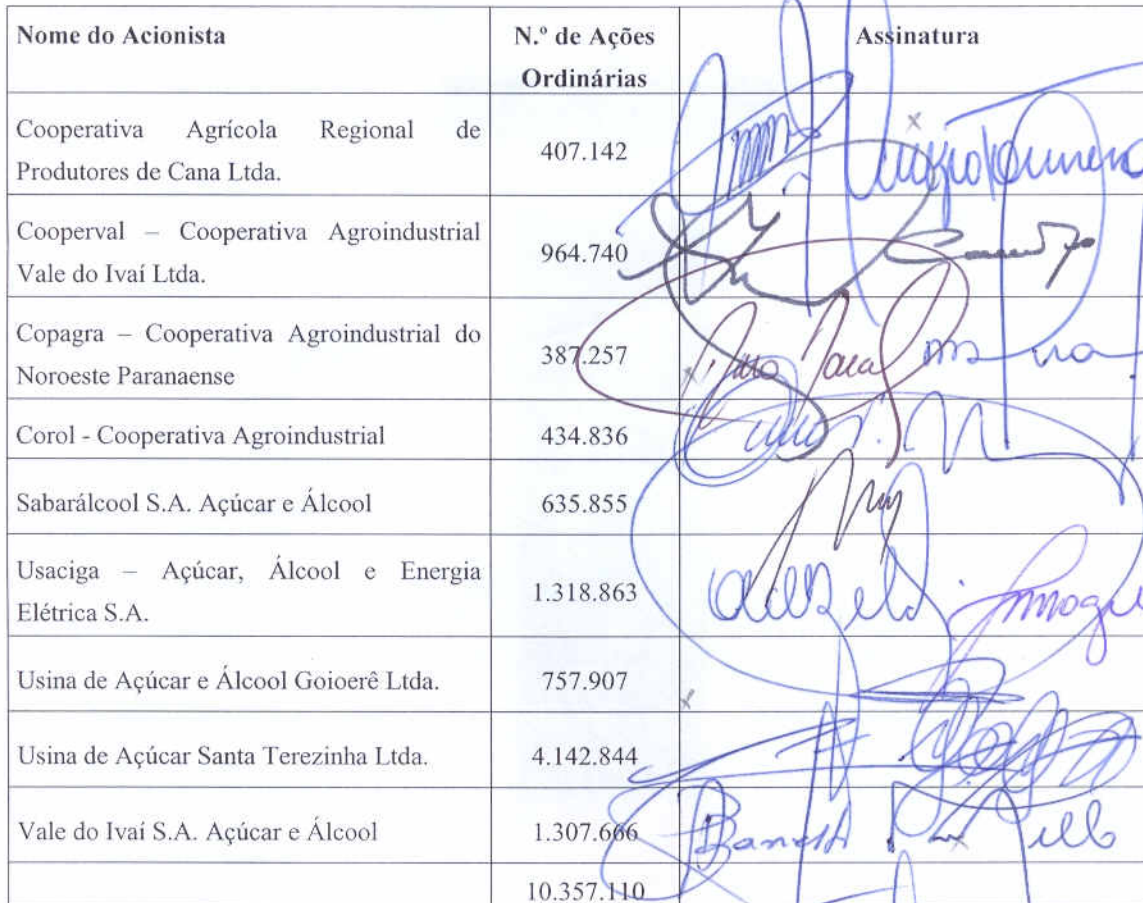 Nome do Acionista N.º de Ações Assinatura
Ordinárias
Cooperativa Agrícola Regional de
Produtores de Cana Ltda. 407.142
Cooperval – Cooperativa Agroindustrial
Vale do Ivaí Ltda. 964.740
Copagra – Cooperativa Agroindustrial do
Noroeste Paranaense 387.257
Corol - Cooperativa Agroindustrial 434.836
Sabarálcool S.A. Açúcar e Álcool 635.855
Usaciga – Açúcar, Álcool e Energia
Elétrica S.A. 1.318.863
Usina de Açúcar e Álcool Goioerê Ltda. 757.907
Usina de Açúcar Santa Terezinha Ltda. 4.142.844
Vale do Ivaí S.A. Açúcar e Álcool 1.307.666
10.357.110